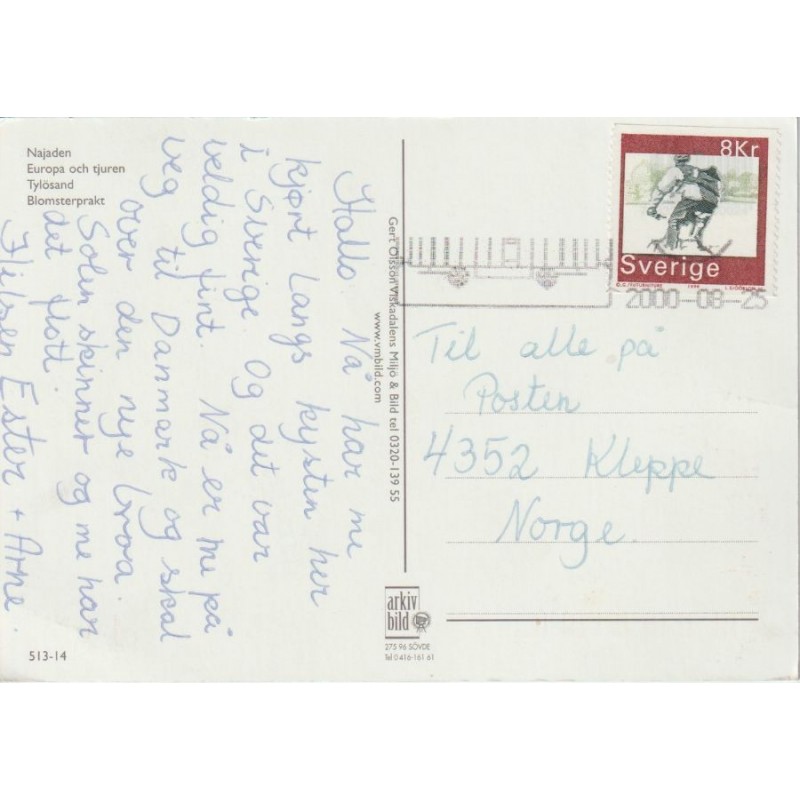 Najaden
Europa och tjuren
Tylösand
Blomsterprakt
Hallo. Nå har me
kjørt langs kysten her
i Sverige. Og det var
veldig fint. Nå er me på
veg til Danmark og skal
over den nye broa.
Solen skinner og me har
det flott.
Hilsen Ester + Arne.
513-14
Gert Olsson/Viskadalens Miljö & Bild tel 0320-139 55
www.vmbild.com
arkiv
bild
275 96 SÖVDE
Tel 0416-161 61
8Kr
Sverige
1999
2000-08-25
Til alle på
Posten
4352 Kleppe
Norge.